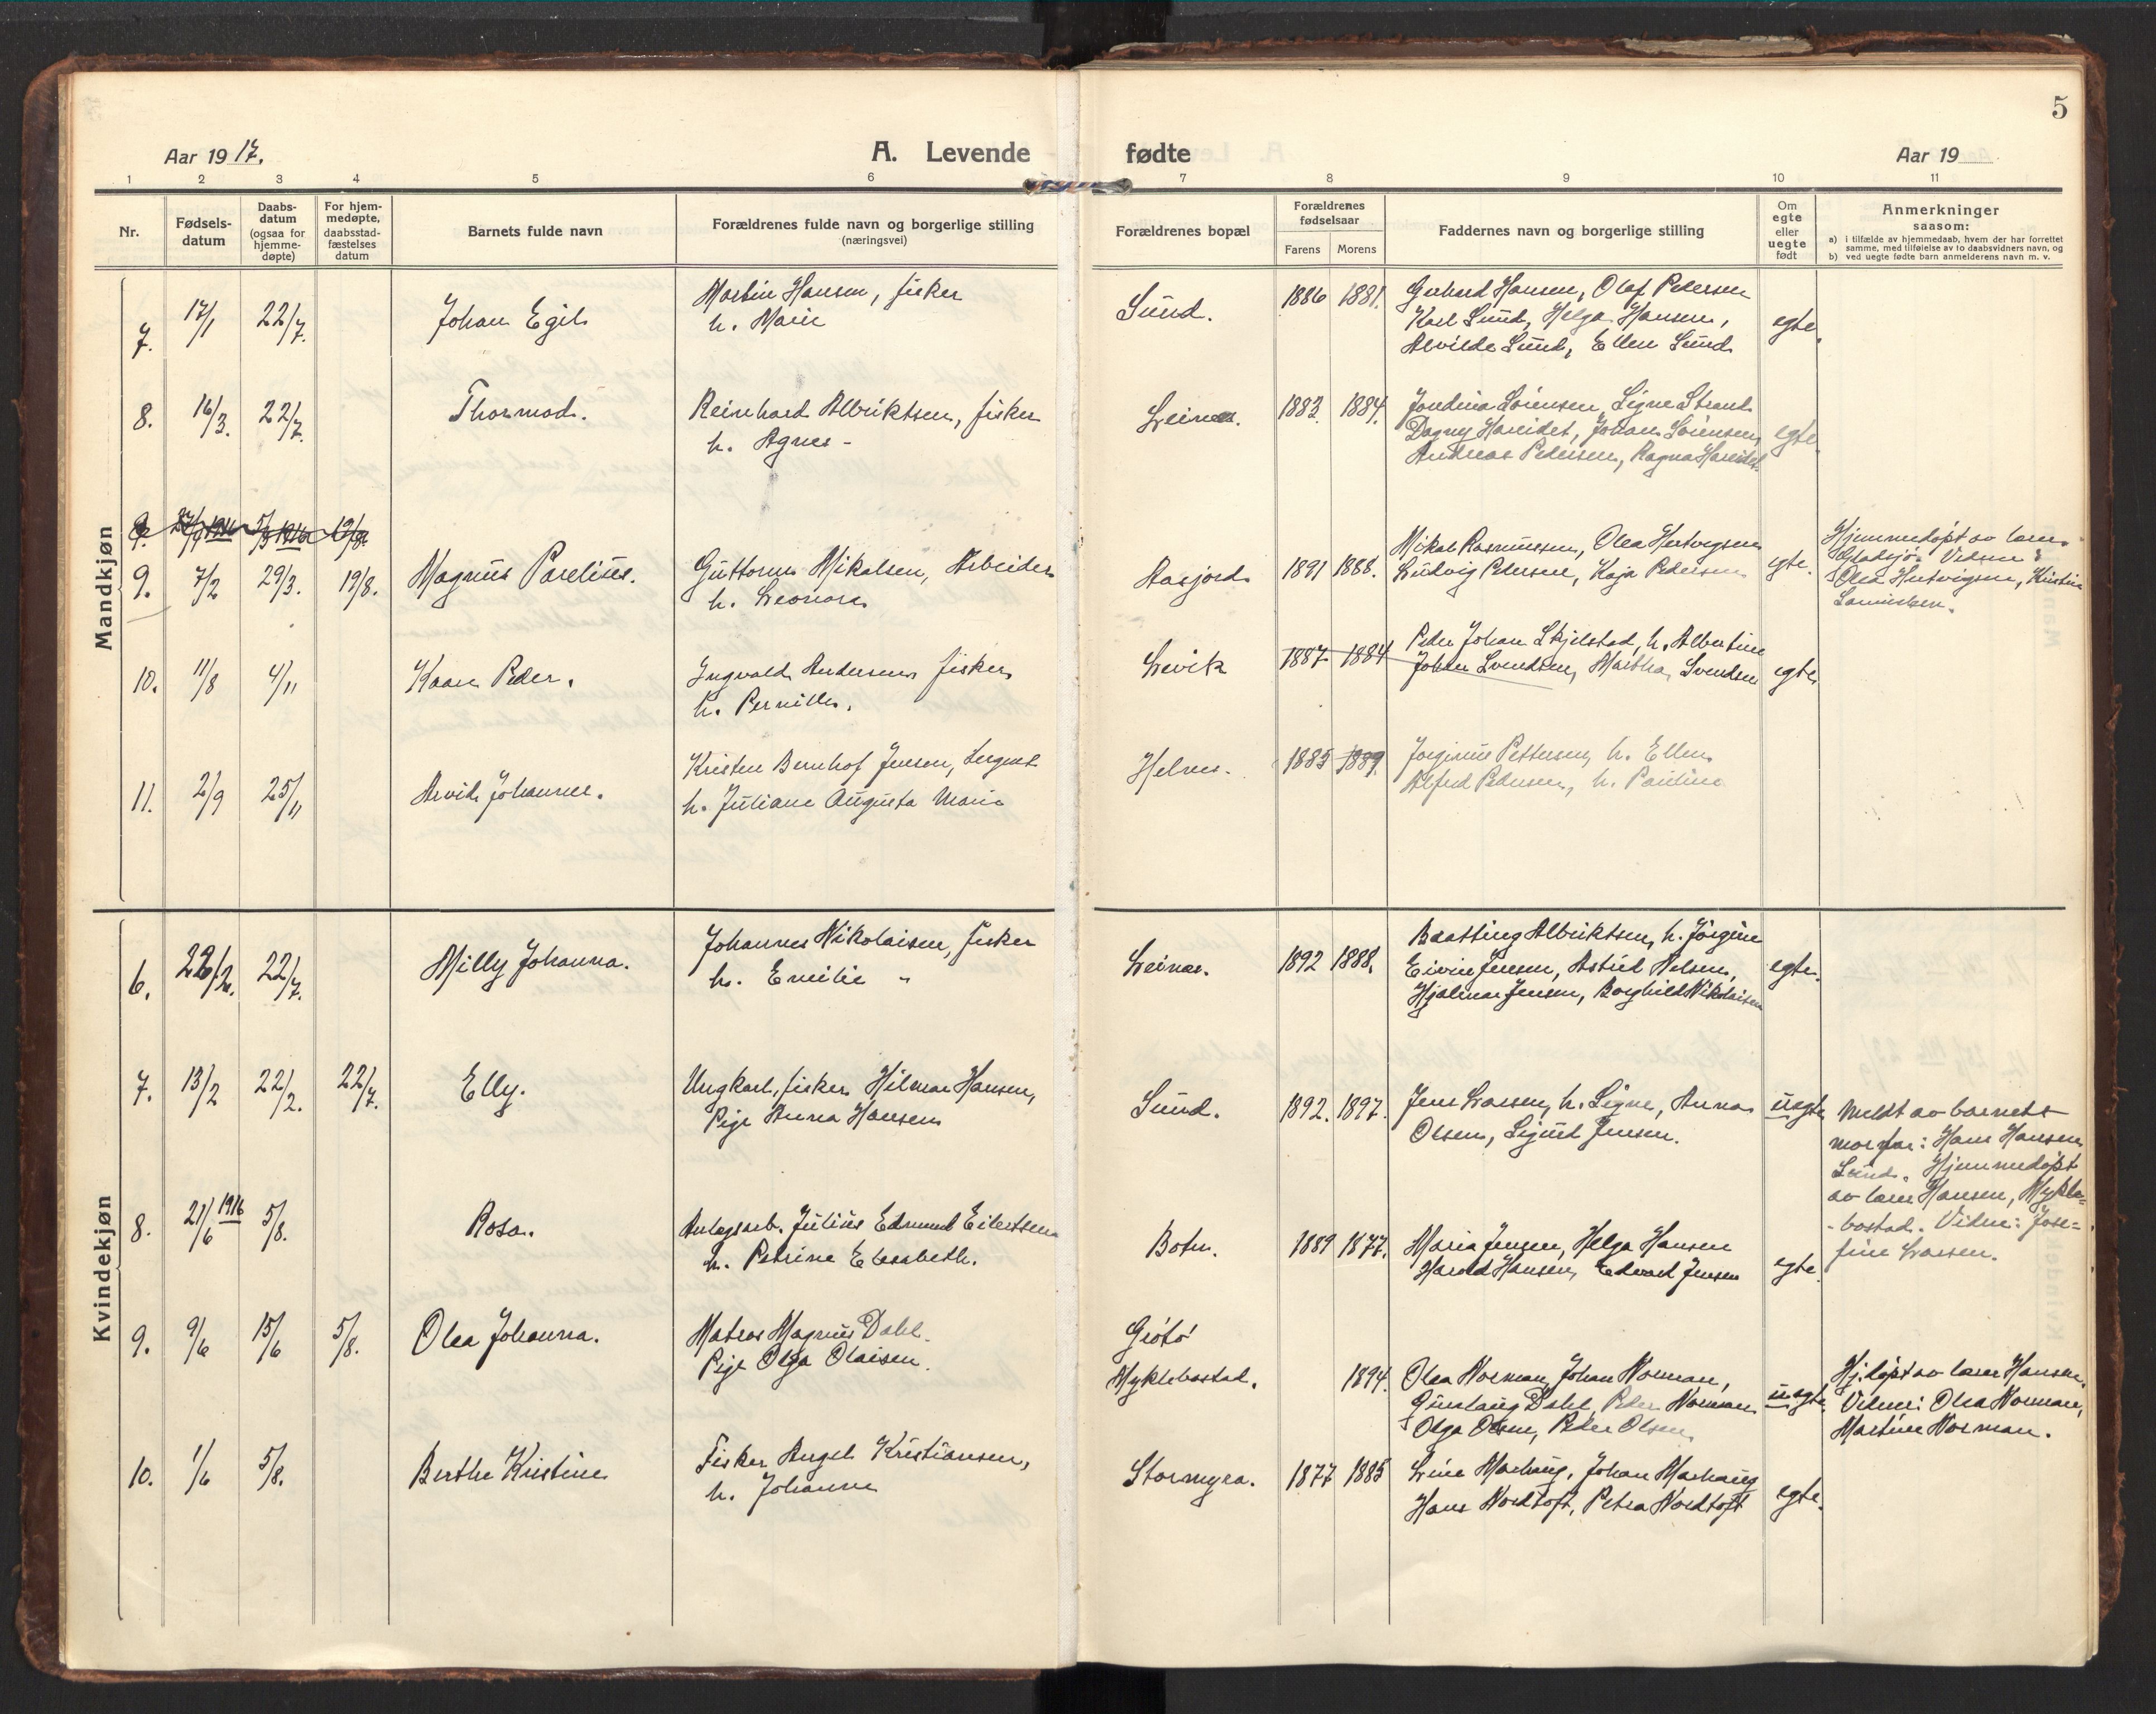 5
Aar 1917.
A. Levende fødte
Aar 19
1 2 3 4 5 6 7 8 9 10 11
Nr.
Fødselsdatum
Daabsdatum (ogsaa for hjemmedøpte)
For hjemmedøpte, daabsstadfæstelses datum
Barnets fulde navn
Forældrenes fulde navn og borgerlige stilling
(næringsvei)
Forældrenes bopæl
Forældrenes fødselsaar
Farens Morens
Faddernes navn og borgerlige stilling
Om egte eller uegte født
Anmerkninger
saasom:
a) i tilfælde av hjemmedaab, hvem der har forrettet
samme, med tilføielse av to daabsvidners navn, og
b) ved uegte fødte barn anmelderens navn m. v.
Mandkjøn
7. 17/1 22/7. Johan Egil Martin Hansen, fisker
h. Marie
Sund. 1886 1881. Gerhard Hansen, Olaf Pedersen
Karl Sund, Helga Hansen,
Alvilde Sund, Ellen Sund
egte.
8. 16/3. 22/7. Thormod. Reinhard Albriktsen, fisker
h. Agnes -
Leines. 1883. 1884. Jordina Sörensen, Signe Strand
Dagny Hareidet, Johan Sörensen,
Andreas Pedersen, Ragna Hareidet
egte
9. 7/2 29/3. 19/8. Magnus Parelius. Guttorm Mikalsen, Arbeider
h. Leonora
Aasjord 1891 1888. Mikal Rasmussen, Olea Hertvigsen
Ludvig Pedersen, Kaja Pedersen
egte.
Hjemmedøpt av lærer
Vidner:
Olea Hertvigsen, Kristine
10. 11/8 4/11 Kaare Peder. Ingvald Andersen fisker
h. Pernille.
Løvik 1887 1884 Peder Johan Skjelstad, h. Albertine
Johan Svendsen, Martha Svendsen
egte
11. 2/9 25/11 Arvid Johannes. Kristen Bernhof Jensen, Sergeant
h. Juliane Augusta Marie
Helnes. 1885 1889. Jørginus Pettersen, h. Ellen
Alfred Pedersen, h. Pauline
Kvindekjøn
6. 22/7. Milly Johanna. Johannes Nikolaisen, fisker
h. Emilie "
Leines. 1892 1888. Baatting Albriktsen, h. Jörgine
Eivin Jensen, Astrid Nilsen,
Hjalmar Jensen, Borghild Nikolaisen
egte.
7. 13/2 22/2. 22/7. Elly. Ungkarl, fisker Hilmar Hansen,
Pige Anna Hansen
Sund. 1892. 1897. Jens Larsen, h. Signe, Anna
Olsen, Sigurd Jensen.
uegte
Meldt av barnets
morfar: Hans Hansen
Sund. Hjemmedøpt
av lærer Hansen, Mykle=
-bostad. Vidne: Jose=
fine Larsen.
8. 21/6 1916 5/8. Rosa. Anlegsarb. Julius Edmund Eilertsen
h. Petrine Elesabeth.
Botn. 1889 1877. Maria Jensen, Helga Hansen
Harald Hansen, Edvard Jensen
egte.
9. 9/6 15/6 5/8. Olea Johanna. Matros Magnus Dahl.
Pige Olga Olaisen.
Grötö
Myklebostad. 1894. Olea Norman, Johan Norman,
Gunstang Dahl, Peder Norman
Olga Olsen, Peder Olsen
uegte.
Hj.døpt av lærer Hansen.
Vidner: Olea Norman,
Martine Norman.
10. 1/6 5/8. Berthe Kristine Fisker Angel Kristiansen,
h. Johanne
Stormyra. 1877 1885 Line Marhaug, Johan Marhaug
Hans Nordtoft, Petra Nordtoft
egte.